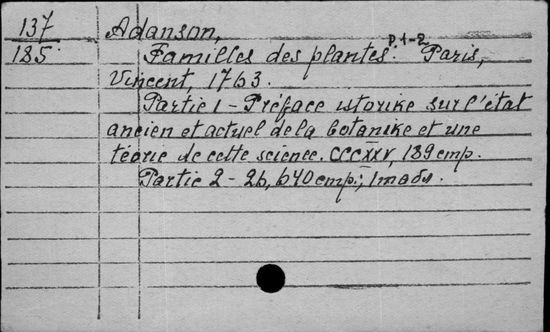 137 Adanson,
185 Familles des plantes. P. 1-2 Paris,
Vincent, 1763.
Partie 1 - Préface istorike sur l'état
ancien et actuel de la botanike et une
téorie de cette science. CCCXXV, 189 emp.
Partie 2 - 26, 640 emp.;